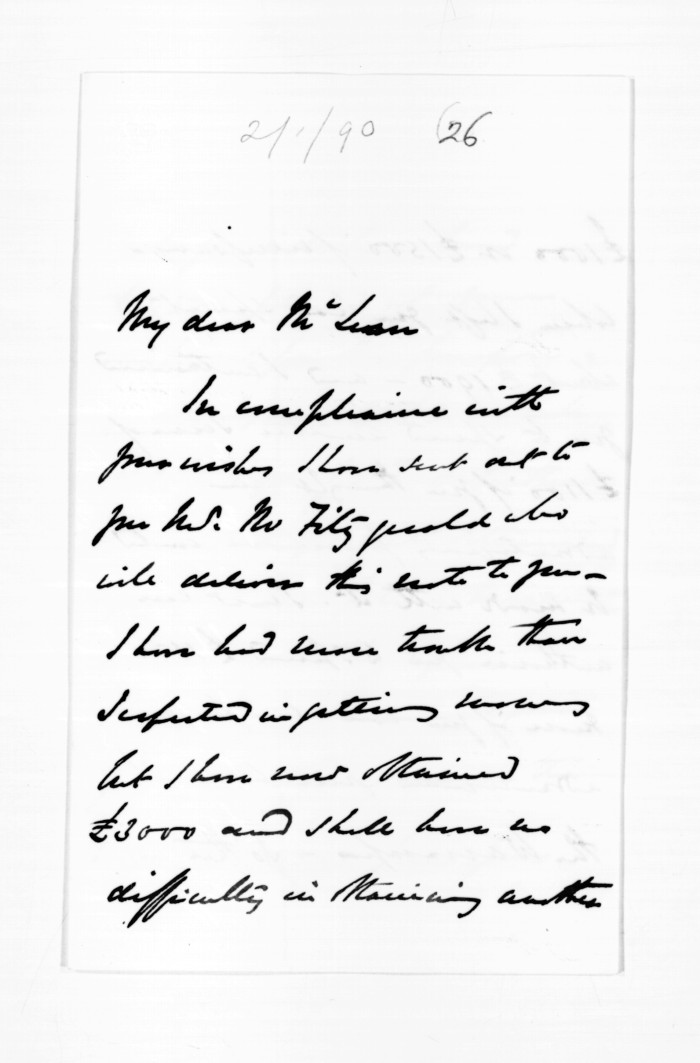 2/1/90 (26
My dear McLean
In compliance with
your wishes I have sent out to
you Mr. Fitzgerald who
will deliver this note to you –
I have had more trouble than
I expected in getting money
but I have now obtained
£3000 and shall have no
difficulty in obtaining another